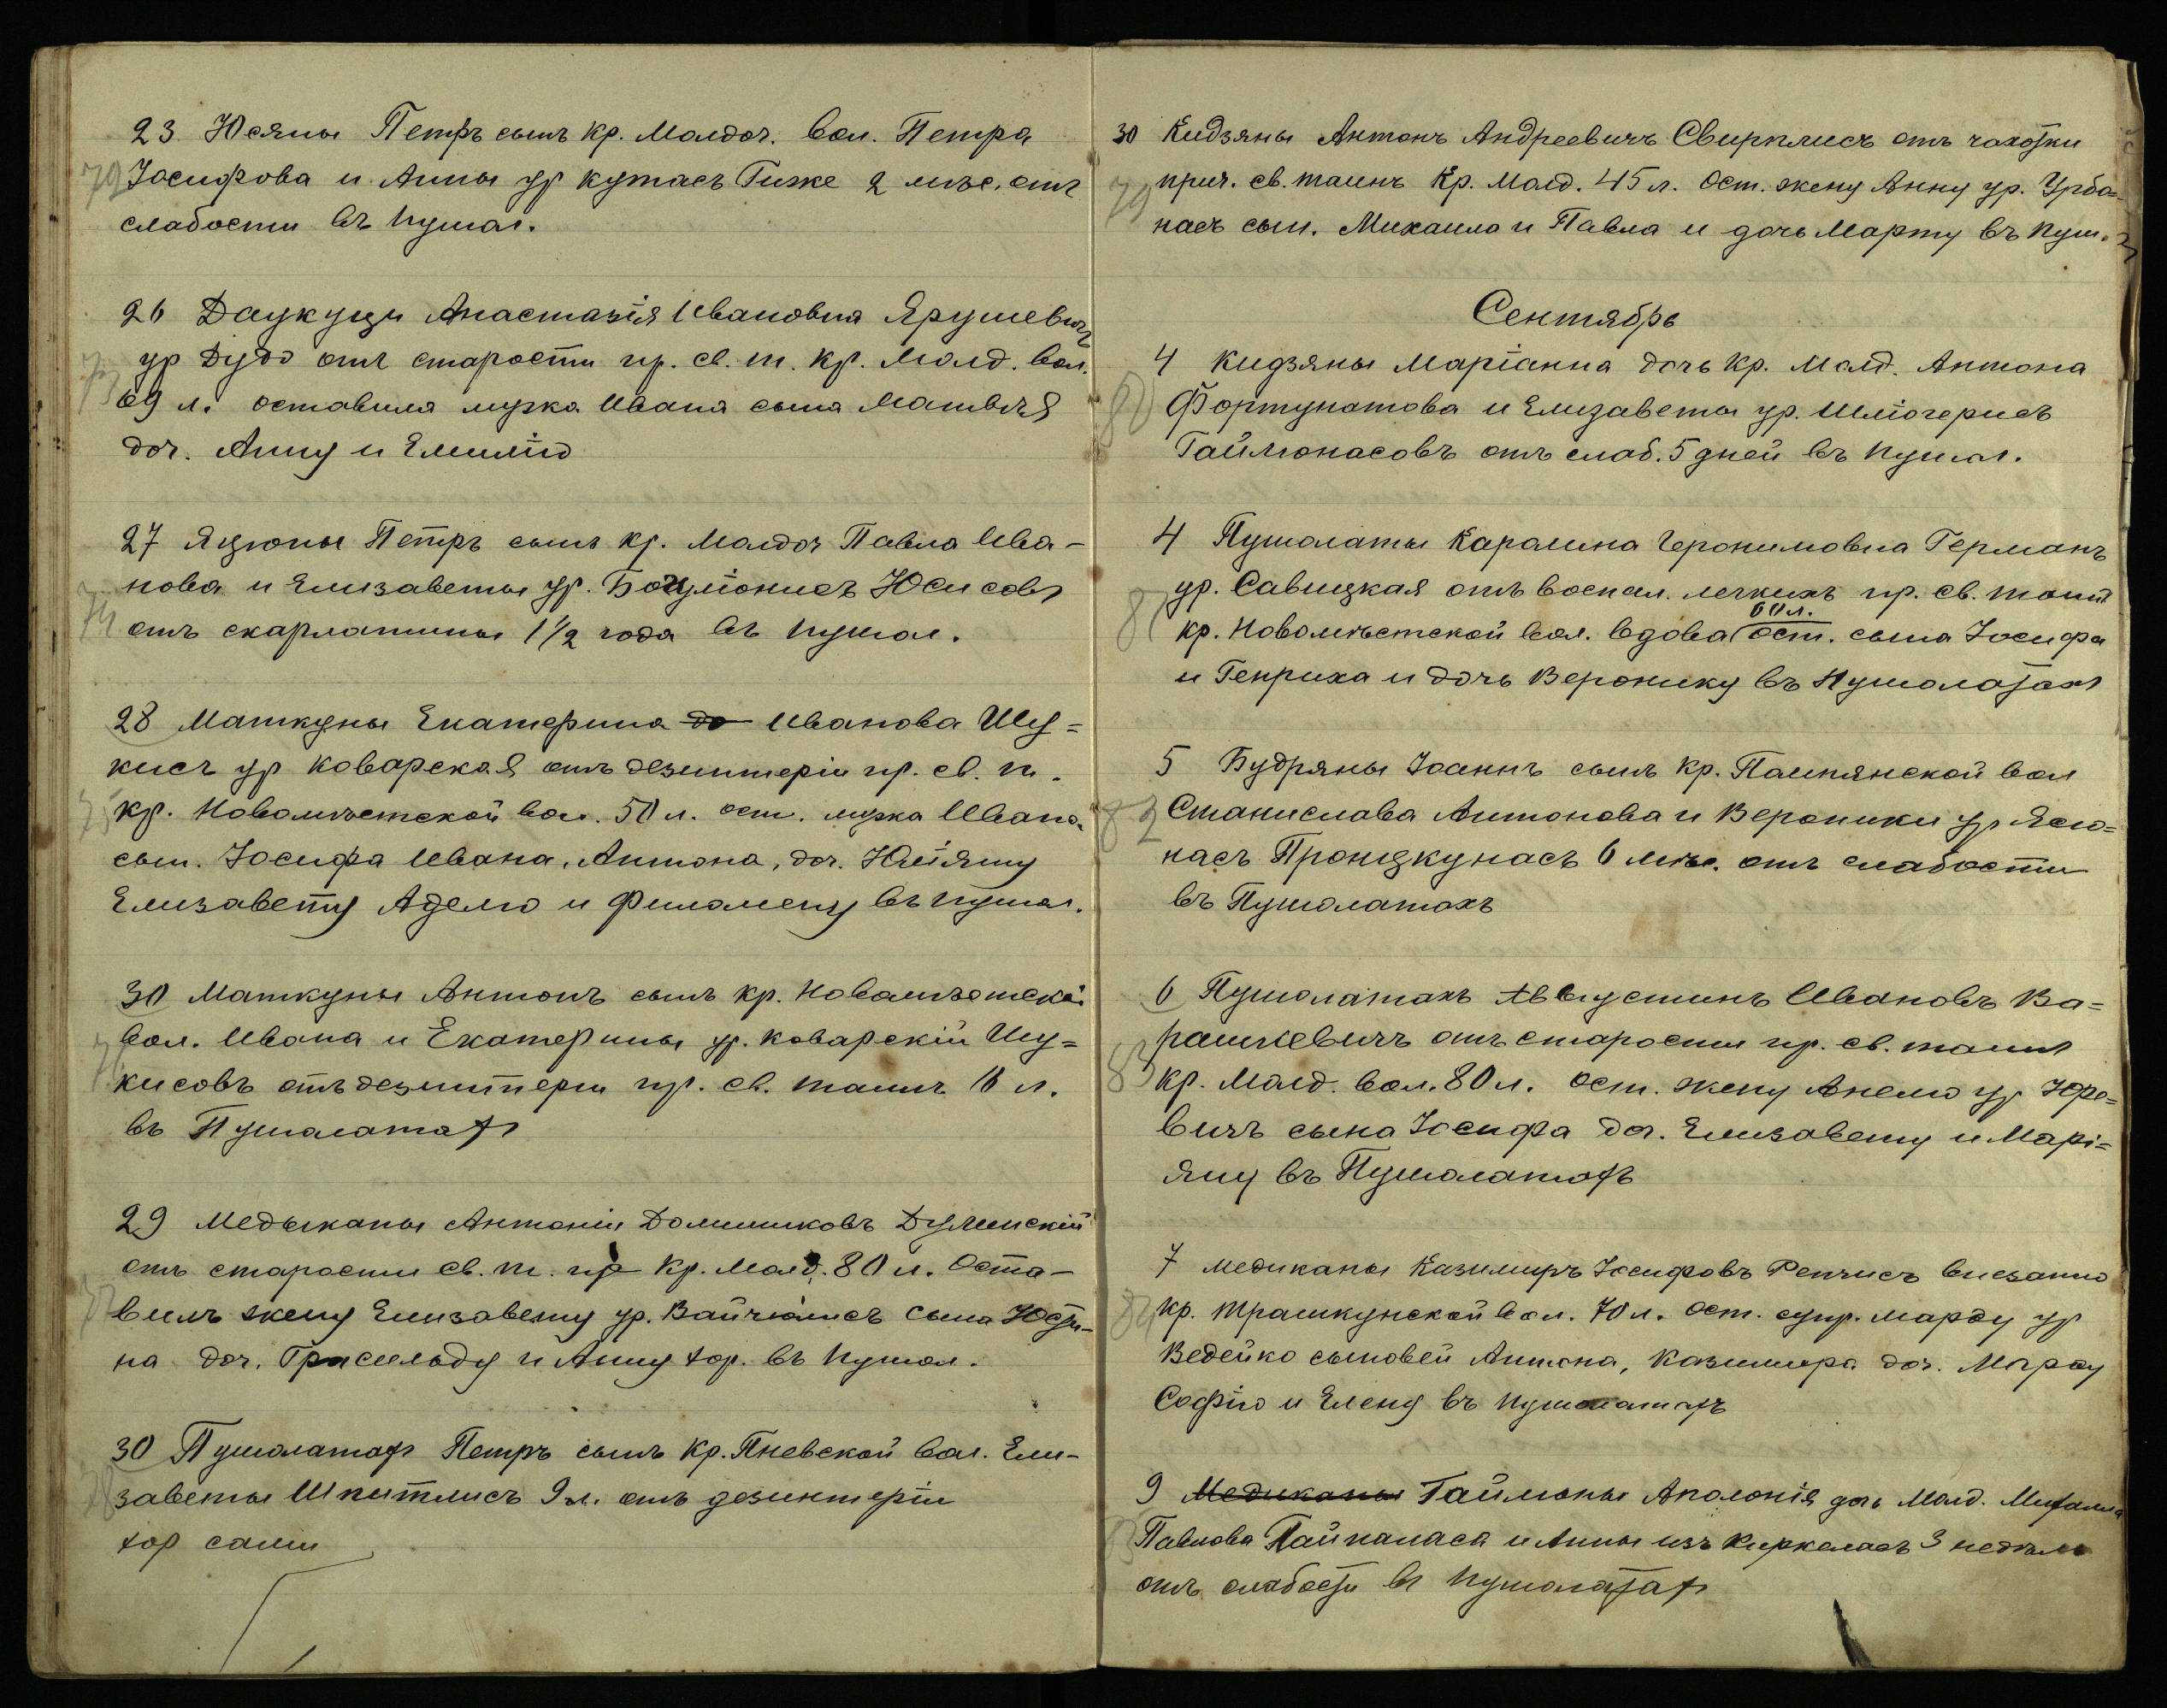 23 Юсяны Петръ сынъ кр. Малдоч. вол. Петра
Іосифова и Анны ур кутасъ Гиже 2 мѣс. отъ
слабости въ пушол.
26 Даукуци Анастазія Ивановна Ярушевичъ
73 ур Дудо отъ старости пр. св. т. кр. Малд. вол.
69 л. оставила мужа Ивана сына Матвѣя
доч. Анну и Емилію
27 Яцюны Петръ сынъ кр. Малдоч Павла Ива-
нова и Елизаветы ур. Юсисовъ
74 отъ скарлатины 1½ года въ пушол.
28 Маткуны Екатерина до Иванова Шу=
кисъ ур Коварская отъ дезинтеріи пр. св. т.
75 кр. Новомѣстской вол. 50 л. ост. мужа Ивана
сын. Іосифа Ивана, Антона, доч. Юліяну
Елизавету Аделю и Филомену въ пушол.
30 Маткуны Антонъ сынъ кр. Новомѣстской
вол. Ивана и Екатерины ур. Коварскій Шу=
кисовъ отъ дезинтеріи пр. св. таинъ л.
въ Пушолатахъ
29 Медыканы Антоній Доминиковъ Думинскій
отъ старости св. т. пр кр. Малд. 80 л. Оста-
77 вилъ жену Елизавету ур. Вайчюлисъ сына Юсти-
на доч. Грасильду и Анну хор. въ пушол.
30 Пушолатахъ Петръ сынъ кр. Пневской вол. Ели-
78 заветы Шкитлисъ 9 л. отъ дезинтеріи
хор сами
30 Кидзяны Антонъ Андреевичъ Свирплисъ отъ чахотки
79 прич. св. таинъ кр. Малд. 45 л. Ост. жену Анну ур. Урбо=
насъ сын. Михаила и Павла и дочь Марту въ пуш.
Сентябрь
4 Кидзяны Маріанна дочь кр. Малд. Антона
80 Фортунатова и Елизаветы ур. Шлюгерисъ
Гайлюнасовъ отъ слаб. 5 дней въ пушол.
4 Пушолаты Каролина Иеронимовна Германъ
ур. Савицкая отъ воспал. легкихъ пр. св. таинъ
60 л.
81 кр. Новомѣстской вол. вдова ост. сына Іосифа
и Генриха и дочь Веронику въ Пушолатахъ
5 Будряны Іоаннъ сынъ кр. Помпянской вол
82 Станислава Антонова и Вероники ур Ясю=
насъ Пронцкунасъ 6 мѣс. отъ слабости
въ Пушолатахъ
6 Пушолатахъ Августинъ Ивановъ Ва=
рашкевичъ отъ старости пр. св. таинъ
83 кр. Малд. вол. 80 л. ост. жену Анелю ур Юре=
вичъ сына Іосифа доч. Елизавету и Марі=
яну въ Пушолатахъ
7 Медиканы Казимиръ Іосифовъ Репчисъ внезапно
84 кр. Трашкунской вол. 70 л. ост. супр. марту ур
Ведейко сыновей Антона, Казимира доч. Марту
Софію и Елену въ пушолатахъ
9 Медиканы Гайлюны Аполонія дочь Малд. Михаила
Павлова и Анны изъ Киркеласъ 3 недѣль
отъ слабости въ пушолатахъ